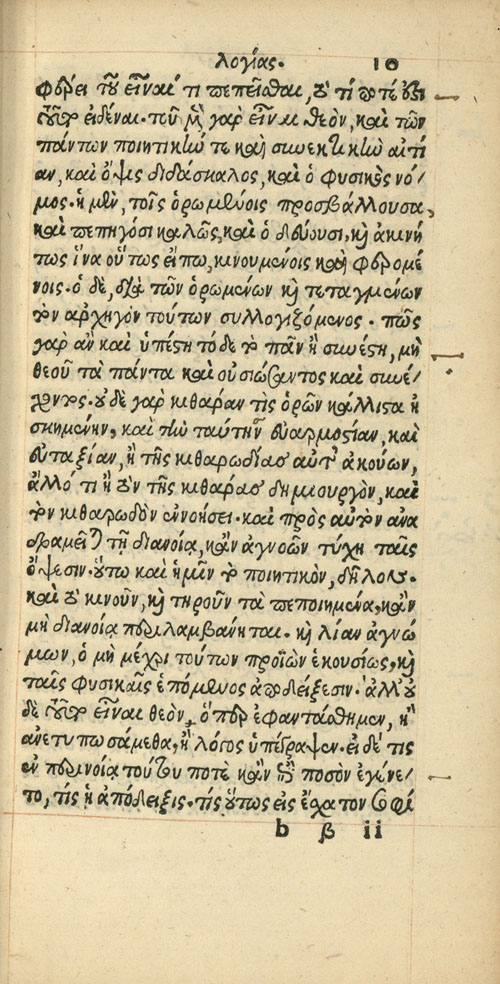 λογίας. 10
φέρει τοῦ εἶναί τι πεπεῖσθαι, ὅ τί ποτέ ἐστι
τοῦτο εἰδέναι. τοῦ μὲν γὰρ εἶναι θεὸν, καὶ τῶν
πάντων ποιητικήν τε καὶ συνεκτικὴν αἰτί
αν, καὶ ὄψις διδάσκαλος, καὶ ὁ φυσικὸς νό/
μος. ἡ μὲν, τοῖς ὁρωμένοις προσβάλλουσα,
καὶ πεπηγόσι καλῶς, καὶ ὁδεύουσι, καὶ ἀκινή
τως ἵνα οὕτως εἴπω, κινουμένοις καὶ φερομέ
νοις. ὁ δὲ, διὰ τῶν ὁρωμένων καὶ τεταγμένων
τὸν ἀρχηγὸν τούτων συλλογιζόμενος. πῶς
γὰρ ἂν καὶ ὑπέστη τόδε τὸ πᾶν ἢ συνέστη, μὴ
θεοῦ τὰ πάντα καὶ οὐσιώσαντος καὶ συνέ/
χοντος. οὐδὲ γὰρ κιθαράν τὶς ὁρῶν κάλλιστα ἠ
σκημένην, καὶ τὴν ταύτην εὐαρμοστίαν, καὶ
εὐταξίαν, ἢ τῆς κιθαρωδίας αὐτῆς ἀκούων,
ἄλλο τι ἢ τὸν τῆς κιθάρας δημιουργὸν, καὶ
τὸν κιθαρωδὸν ἐννοήσει. καὶ πρὸς αὐτὸν ἀνα
δραμεῖται τῇ διανοίᾳ, κἂν ἀγνοῶν τύχῃ ταῖς
ὄψεσιν. οὕτω καὶ ἡμῖν τὸ ποιητικὸν, δῆλον.
καὶ τὸ κινοῦν, καὶ τηροῦν τὰ πεποιημένα, κἂν
μὴ διανοίᾳ περιλαμβάνηται. καὶ λίαν ἀγνώ
μων, ὁ μὴ μέχρι τούτων προϊὼν ἑκουσίως, καὶ
ταῖς φυσικαῖς ἑπόμενος ἀποδείξεσιν. ἀλλ' οὐ
δὲ τοῦτο εἶναι θεὸν, ὅπερ ἐφαντάσθημεν, ἢ
ἀνετυπωσάμεθα, ἢ λόγος ὑπέγραψεν. εἰ δέ τις
ἐν περινοίᾳ τούτου ποτὲ κἂν ἐπὶ ποσὸν ἐγένε/
το, τίς ἡ ἀπόδειξις. τίς οὕτως εἰς ἔσχατον σοφί
b β ii